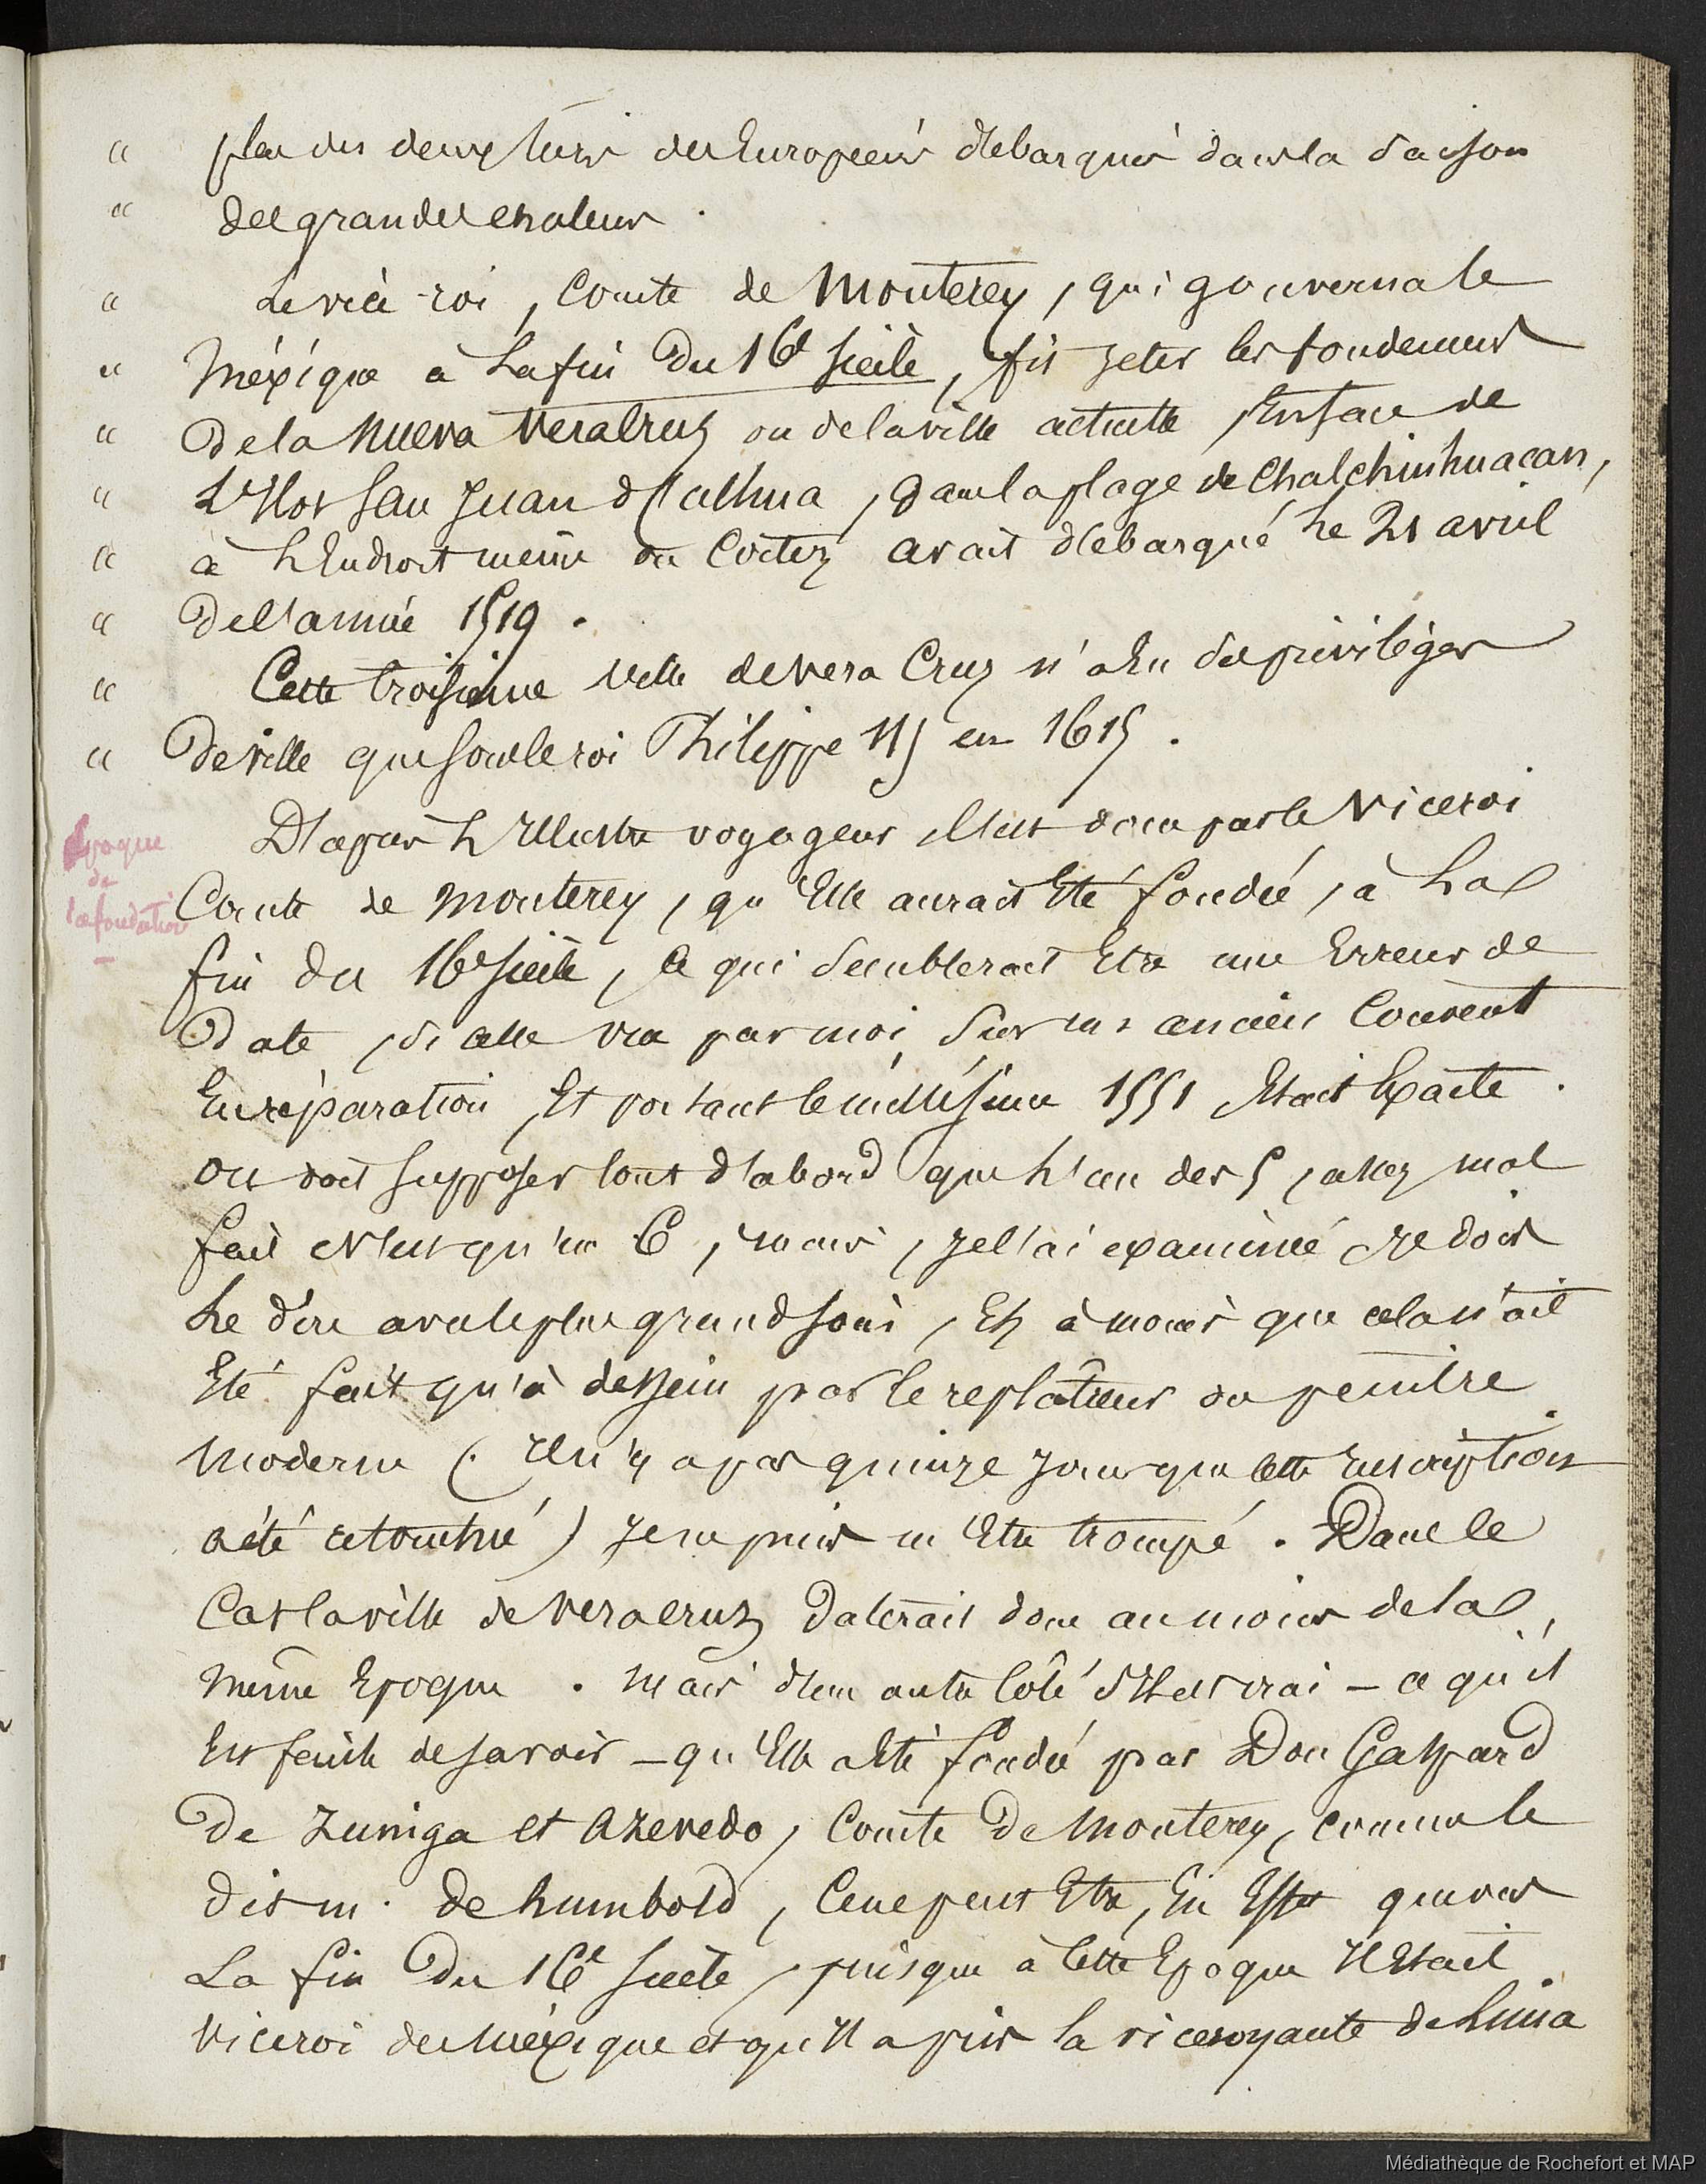 " plus des deux tiers des Européens débarqués dans la saison
" des grandes chaleurs.
" Le vice-roi, Comte de Monterey, qui gouverna le
" Méxique à la fin du 16e siècle, fit jeter les fondemens
" de la Nueva Veracruz ou de la ville actuelle, en face de
" l'Ilot San Juan d'Ulhua, dans la plage de Chalchiuhuacan,
" à l'Endroit même où Cortez avait débarqué le 21 avril
" de l'année 1519.
" Cette troisième ville de Vera Cruz n'a Eu des privilèges
" de ville que sous le roi Philippe III en 1615.
Epoque
de
la fondation
–
D'après l'Illustre voyageur c'est donc par le Viceroi
Comte de Monterey, qu'Elle aurait Eté fondée, à La
fin du 16e siècle, ce qui semblerait Etre une Erreur de
Date, si celle vue par moi, sur un ancien Couvent
En réparation, Et portant le millésime 1551 Etait Exacte.
on doit supposer tout d'abord que l'un des 5, assez mal
fait n'est qu'un 6, mais, je l'ai examinée je dois
Le dire avec le plus grand soin, Et, à moins que cela n'ait
Eté fait qu'à dessein par le replâtreur ou peintre
moderne (Il n'y a pas quinze jours que cette Inscription
a été retouchée) je ne puis m'Etre trompé. Dans le
Cas la ville de Veracruz daterait donc au moins de la
même Epoque. Mais d'un autre Côté s'Il est vrai – ce qu'il
Est facile de savoir – qu'Elle a Eté fondée par Don Gaspard
de Zuniga et Azevedo, Comte de Monterey, comme le
dit m. de humbold, Ce ne peut Etre, En Effet que vers
La fin du 16e siècle, puisque à Cette Epoque Il Etait
Viceroi du Méxique et qu'Il a pris la viceroyauté de Lima
Médiathèque de Rochefort et MAP